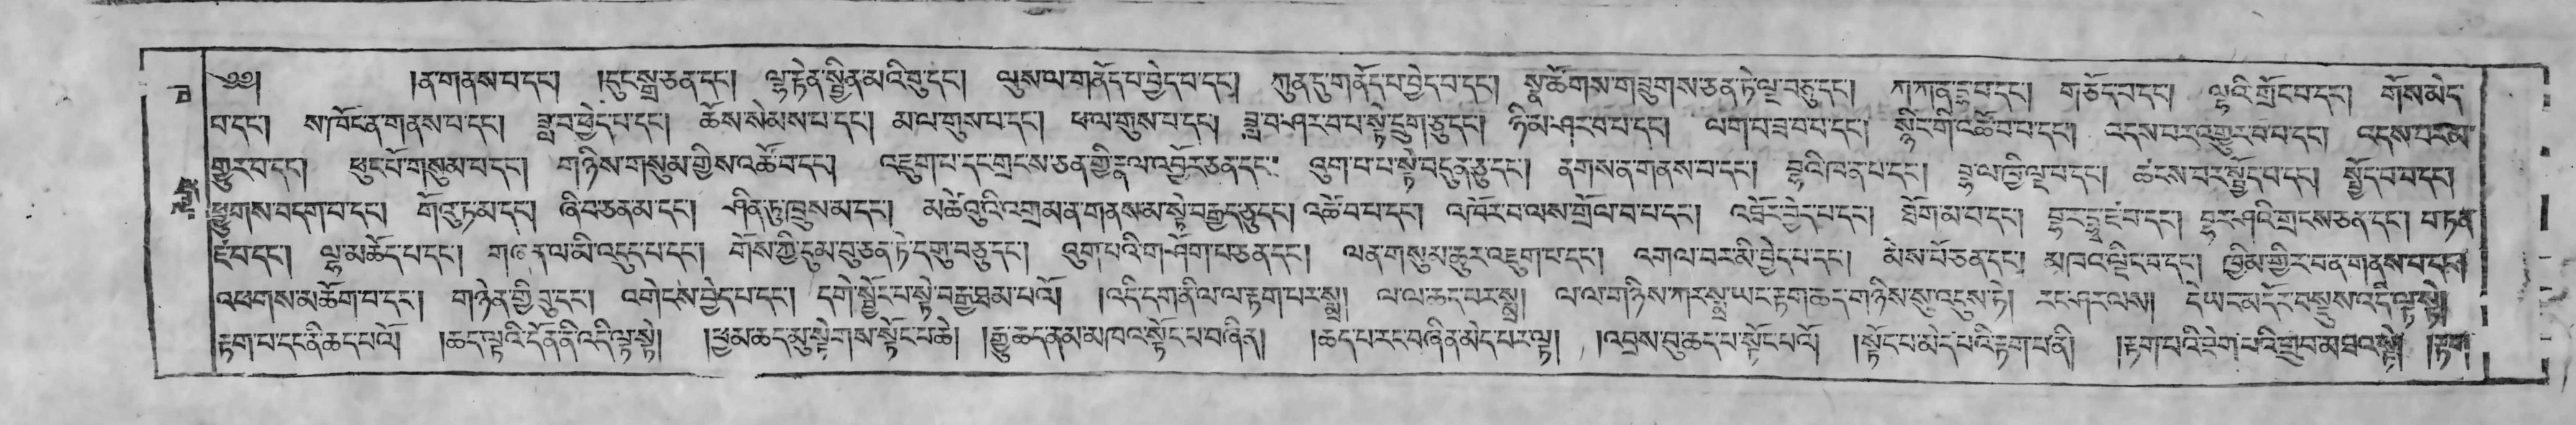 ༄༅། །ན་གནས་པ་དང༌། །དུང་སྒྲ་ཅན་དང༌། ལྷ་རྟེན་སྦྱིན་མའི་བུ་དང༌། ལུས་ལ་གནོད་པ་བྱེད་པ་དང༌། ཀུན་ཏུ་གནོད་པ་བྱེད་པ་དང༌། སྣ་ཚོགས་གཟུགས་ཅན་ཏེ་ལྔ་བཅུ་དང༌། ཀ་ཀན་ད་པ་དང༌། གཅོད་པ་དང༌། ལྷའི་གྲོང་པ་དང༌། གོས་མེད་
པ་དང༌། ས་ཁོངན་གནས་པ་དང༌། ཟླ་བ་ཕྱེད་པ་དང༌། ཆོས་སེམས་པ་དང༌། མ་ལ་གུས་པ་དང༌། ཕ་ལ་གུས་པ་དང༌། ཟླ་བ་ཤར་བ་པ་སྟེ་དྲུག་ཅུ་དང༌། ཉི་མ་ཤར་བ་པ་དང༌། ལག་པ་ཟ་བ་པ་དང༌། སྙིང་གི་འཚོ་བ་པ་དང༌། འདས་པར་འགྱུར་བ་པ་དང༌། འདས་པར་མ་
གྱུར་བ་དང༌། ཕུང་པོ་གསུམ་པ་དང༌། གཉིས་གསུམ་གྱིས་འཚོ་བ་དང༌། འཇུག་པ་དང་གྲངས་ཅན་གྱི་རྣལ་འབྱོར་ཅན་དང༌། འུག་པ་པ་སྟེ་བདུན་ཅུ་དང༌། ནགས་ན་གནས་པ་དང༌། ལྔ་ལ་ཁྱི་ལྔ་པ་དང༌། ཚངས་པར་སྤྱོད་པ་དང༌། སྤྱོད་པ་པ་དང༌།
ཕྱུགས་བདག་པ་དང༌། གོའུ་ཏམ་དང༌། ཞི་བ་ཅན་མ་དང༌། ཤིན་ཏུ་ཁྲུས་མ་དང༌། མཚེའུའི་འགྲམ་ན་གནས་མ་སྟེ་བརྒྱད་ཅུ་དང༌། འཚེ་བ་པ་དང༌། ལ་འཁོར་བ་ལས་གྲོལ་བ་པ་དང༌། ཐོག་མ་པ་དང༌། གྲངས་ཅན་དང༌། པ་ཏན་
ཛ་པ་དང༌། ལྷ་མཆོད་པ་དང༌། གཞན་ལ་མི་འདུད་པ་དང༌། གོས་ཀྱི་དུམ་བུ་ཅན་ཏེ་དགུ་བཅུ་དང༌། འུག་པའི་གཤོག་པ་ཅན་དང༌། ལན་གསུམ་ཆུར་འཇུག་པ་དང༌། འགལ་བར་མི་བྱེད་པ་དང༌། མེས་པོ་ཅན་དང༌། མཁའ་ལྡིང་བ་དང༌། ཁྱིམ་གྱི་ར་བ་ན་གནས་པ་དང༌།
འཕགས་མཆོག་པ་དང༌། གཉེན་གྱི་བུ་དང༌། འགེངས་བྱེད་པ་དང༌། དགེ་སྦྱོང་པ་སྟེ་བརྒྱ་ཐམ་པའོ། །འདི་དག་ནི་ལ་ལ་རྟག་པར་སྨྲ། ལ་ལ་ཆད་པར་སྨྲ། ལ་ལ་གཉིས་ཀར་སྨྲ་ཡང་རྟག་ཆད་གཉིས་སུ་འདུས་ཏེ། རང་ཤར་ལས། དེ་ཡང་མདོར་བསྡུས་འདི་ལྟ་སྟེ།
རྟག་པ་དང་ནི་ཆད་པའོ། །ཆད་ལྟའི་དོན་ནི་འདི་ལྟ་སྟེ། །ཕྱམ་ཆད་མུ་སྟེགས་སྟོང་པ་ཆེ། །རྒྱུ་ཆད་ནམ་མཁའ་སྟོང་པ་བཞིན། །ཆད་པ་རང་བཞིན་མེད་པར་ལྟ། །འབྲས་བུ་ཆད་པ་སྟོང་པའོ། །སྟོང་པ་མེད་པའི་རྟག་པ་ནི། །རྟག་པའི་ཐེག་པའི་གྲུབ་མཐའ་སྟེ། །རྟག་